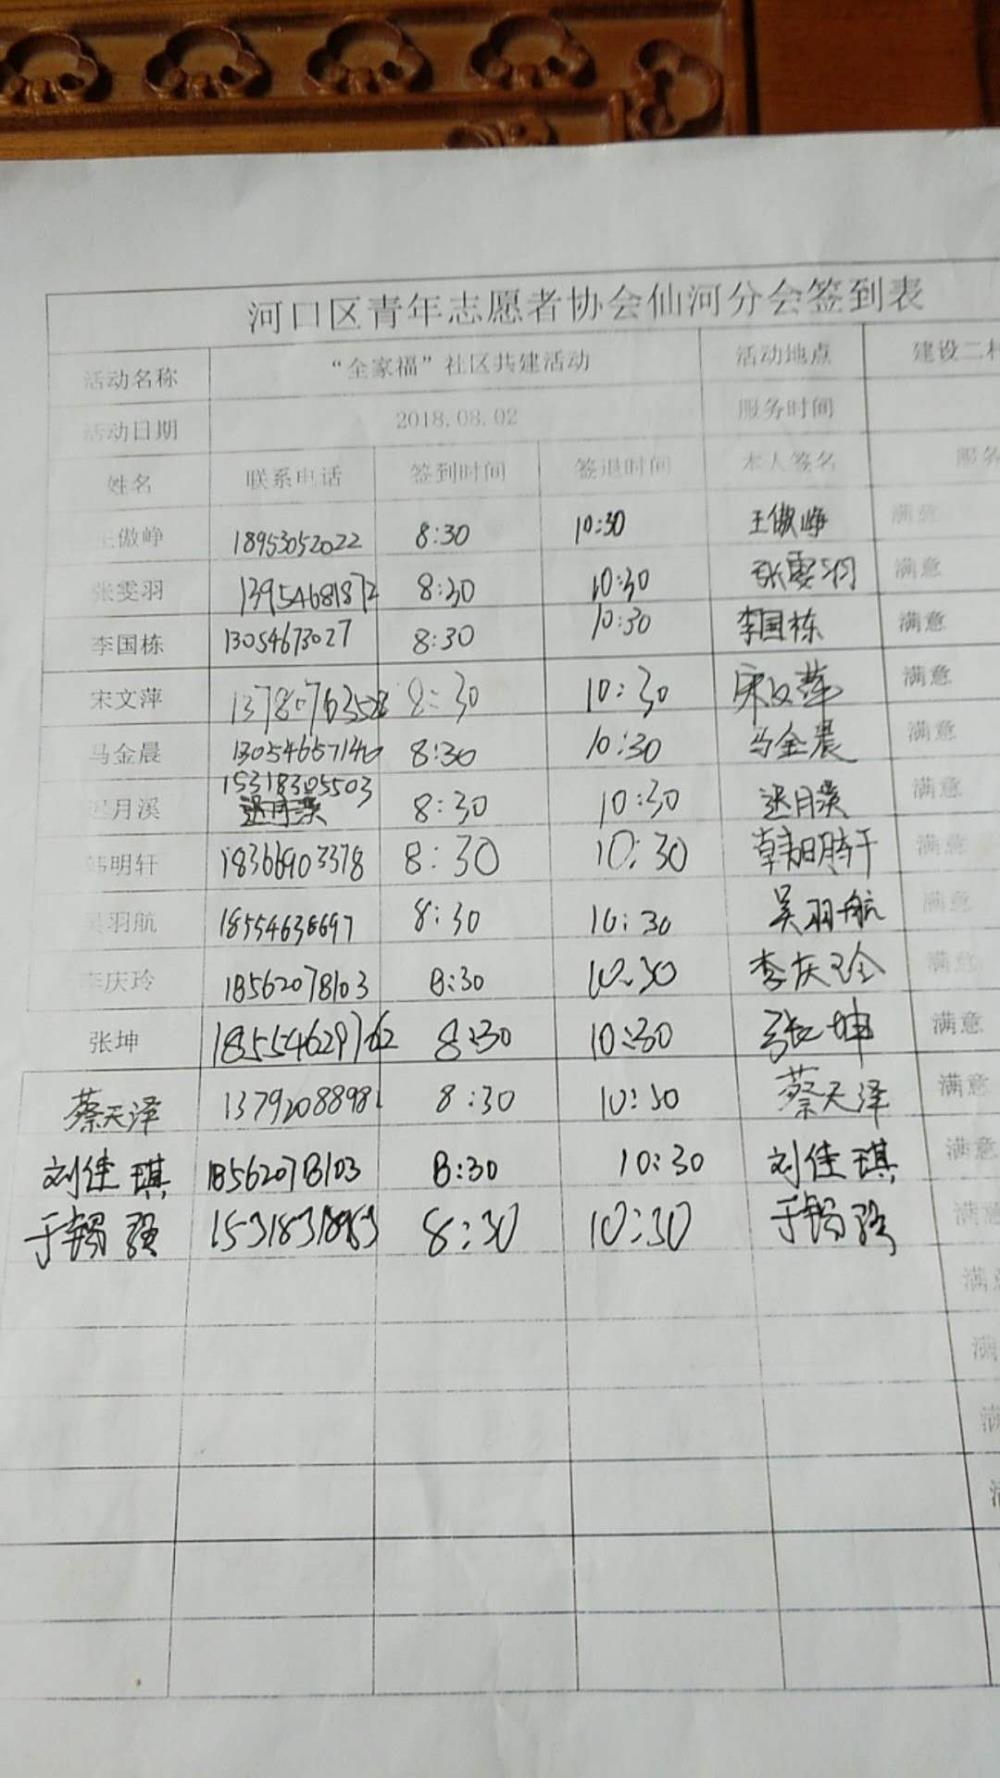 河口区青年志愿者协会仙河分会签到表
活动名称 “全家福”社区共建活动 活动地点 建设二村
活动日期 2018.08.02 服务时间
姓名 联系电话 签到时间 签退时间 本人签名 服务
王傲峥 18953052022 8:30 10:30 王傲峥 满意
张雯羽 13954681872 8:30 10:30 张雯羽 满意
李国栋 13054673027 8:30 10:30 李国栋 满意
宋文萍 13780763528 8:30 10:30 宋文萍 满意
马金晨 13054657140 8:30 10:30 马金晨 满意
迟月溪 15318305503 8:30 10:30 迟月溪 满意
韩明轩 18366903378 8:30 10:30 韩明轩 满意
吴羽航 18554638697 8:30 10:30 吴羽航 满意
李庆玲 18562078103 8:30 10:30 李庆玲 满意
张坤 18554629762 8:30 10:30 张坤 满意
蔡天泽 13792088981 8:30 10:30 蔡天泽 满意
刘佳琪 18562078103 8:30 10:30 刘佳琪 满意
于锡强 8:30 10:30 于锡强 满意
满意
满
满